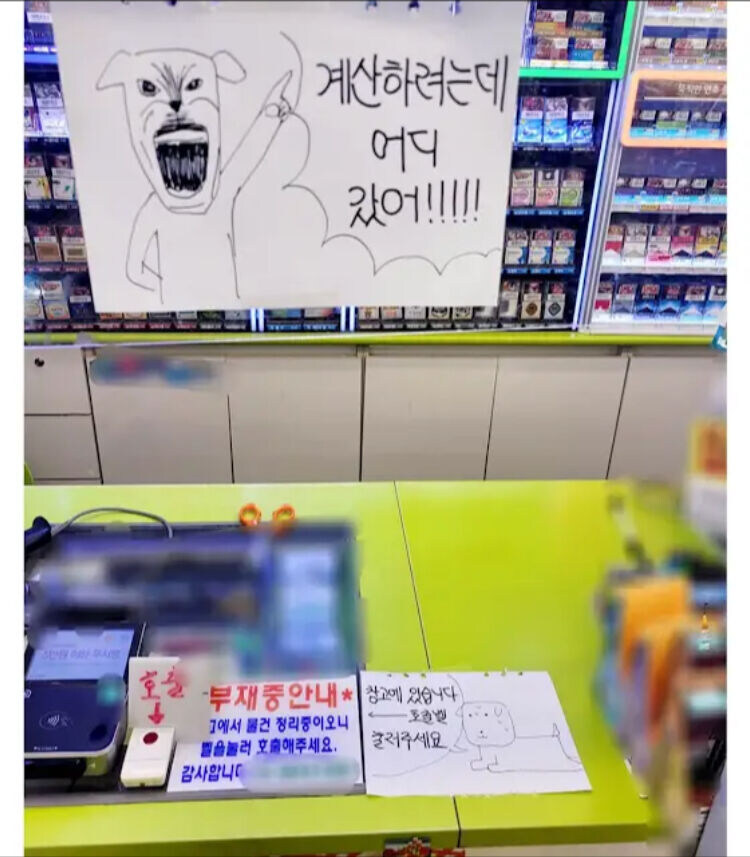 계산하려는데
어디
갔어!!!!!
호출
부재중안내*
고에서 물건 정리중이오니
벨을눌러 호출해주세요.
감사합니다
창고에 있습니다
← 호출벨
눌러주세요